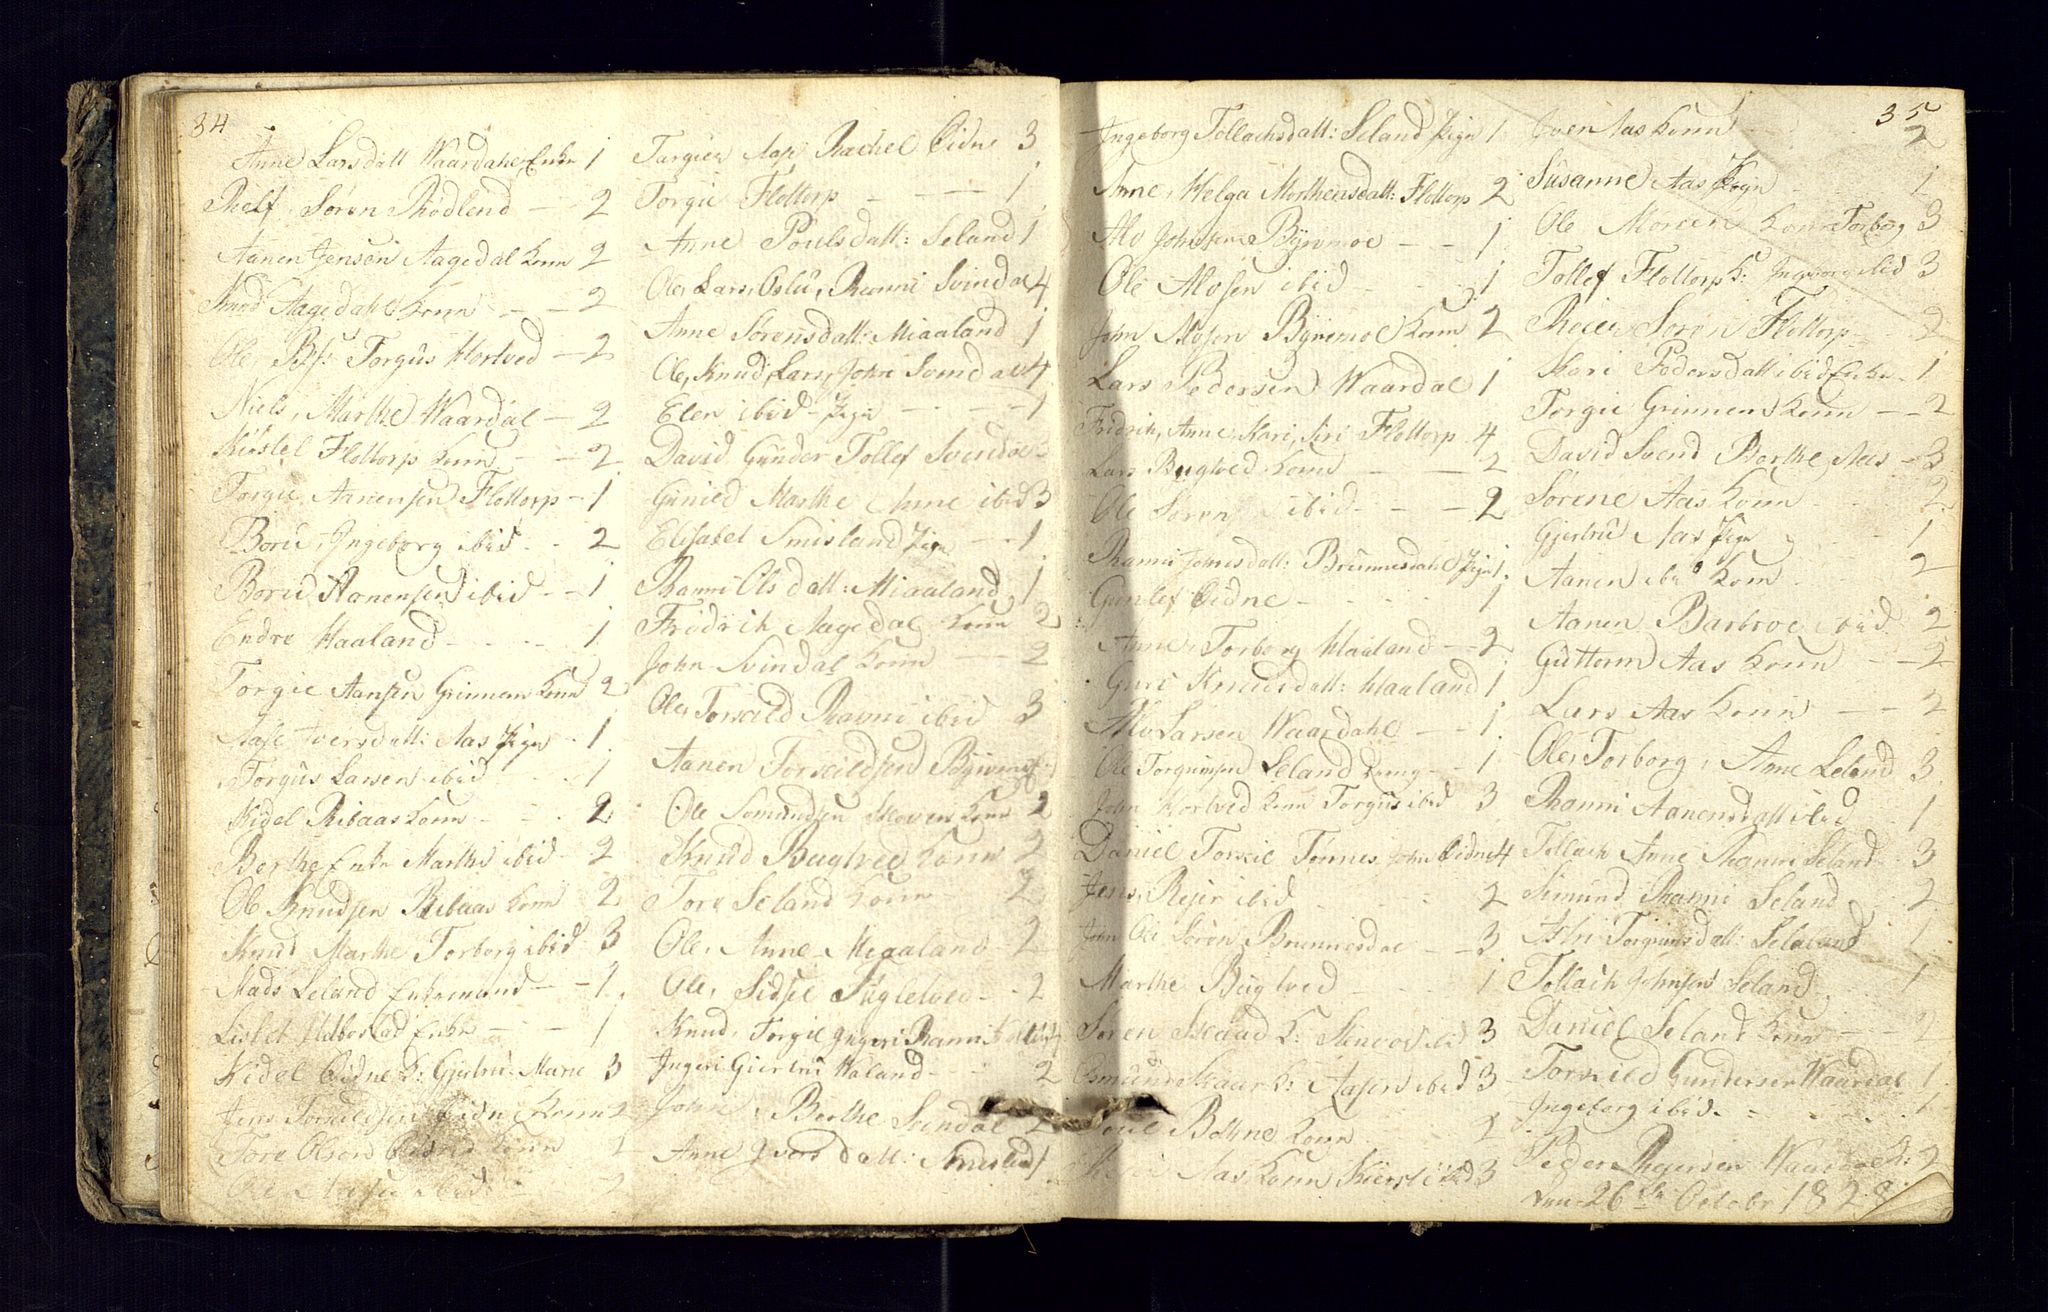 34
Anne Larsdatt Waardahl Enke 1
Relf, Søren Rødlend - - 2
Aanen Jensen Aagedal Konn 2
Knud Aagedahl Konn - - 2
Ole, Torgus Hortved - 2
Niels, Marthe Waardal - 2
Kiøstel Flottorp Konn - - 2
Torgie Aanensen Flottorp - 1
Boru, Ingeborg ibid - - 2
Boru Aanensen ibid - - 1
Endre Haaland - - - - 1
Torgie Aansen Grinnem Konn 2
Aase Iversdatt: Aas Pige - 1
Torgus Larsen ibid - - 1
Kidel Ribaas Konn - - - 2
Berthe Enke Marthe ibid - 2
Ole Knudsen Ribaas Konn 2
Knud Marthe Torborg ibid 3
Mads Leland Enkemand - - 1
Lisbet Enke - - - 1
Kidel Eidne K: Giertru Marie 3
Jens Torkildsen Eidne Konn 2
Tore Olson Konn 2
Ole ibid - 2
Targier Aase Rachel Eidne 3
Torgie Flottorp - - - - 1
Anne Poulsdatt: Seland 1
Ole, Lars, Oslu, Ranni Svindal 4
Anne Sørensdatt: Miaaland 1
Ole, Knud, Lars, John Svindal 4
Elen ibid - Pige - - - - 1
David Gunder Tollef Svindal
Gunild Marthe Anne ibid 3
Elisabet Smisland Pige - - 1
Ranni Olsdatt: Miaaland 1
Fridrik Aagedal Konn 2
John Svindal Konn - - 2
Ole, Torkild Ranni ibid 3
Aanen Torkildsen Byremo
Ole Somundsen Konn 2
Knud Bugtved Konn 2
Tore Seland Konn 2
Ole, Anne Miaaland 2
Ole, Sidsel Fugletved - - 2
Knud, Torgie Ingeri Ranni 4
Ingeri Giertru Haland - - 2
John, Berthe Svindal 2
Anne Iversdatt: Smisland 1
Ingeborg Tollachsdatt: Seland Pige 1
Anne, Helga Morthensdatt: Flottorp 2
Alv Johnsen Byremoe - - 1
Ole Alvsen ibid - - - 1
John Alvsen Byremoe Konn 2
Lars Pedersen Waardal 1
Fridrik, Anne, Kari, Siri Flottorp 4
Lars Bugtved Konn - - 2
Ole Søren ibid - - - 2
Ranni Johnsdatt: Brunnesdahl Pige 1
Gunlef Eidne - - - - 1
Anne, Torborg Haaland - - 2
Guri Knudsdatt: Haaland 1
Alv Larsen Waardahl - - 1
Ole Torgrimsen Seland - - 1
John Hortved Konn Torgus ibid 3
Daniel Torkil Tønnes John Eidne 4
Jens, Rejer ibid - - - 2
John Ole Søren Brunnesdal - - 3
Marthe Bugtved - - - 1
Søren K: ibid 3
Osmund K: Aasen ibid 3
Konn - - 2
Aas Konn ibid 3
35
Iver Aas Konn 2
Susanne Aas Pige - - 1
Ole Konn Torborg 3
Tollef Flottorp K: Ingeborg ibid 3
Søren Flottorp - 2
Kari Pedersdatt ibid Enke - 1
Torgie Grinnem Konn - - 2
David Svend Berthe Aas - 3
Sørene Aas Konn - - - 2
Giertru Aas Pige - - - 1
Aanen ibid Konn - - 2
Aanen Barbroe ibid 2
Guttorm Aas Konn - - 2
Lars Aas Konn - - 2
Ole, Torborg, Anne Leland 3
Ranni Aanensdatt ibid - 1
Tollach Anne Ranni Seland - 3
Simund Ranni Seland - 2
Torgrimsdatt: Seland 1
Tollach Johnsen Seland - 1
Daniel Seland Konn - - 2
Torkild Gundersen Waardal 1
Ingeborg ibid - - - 1
Peder Waardal K: 2
den 26de Octobr 1828